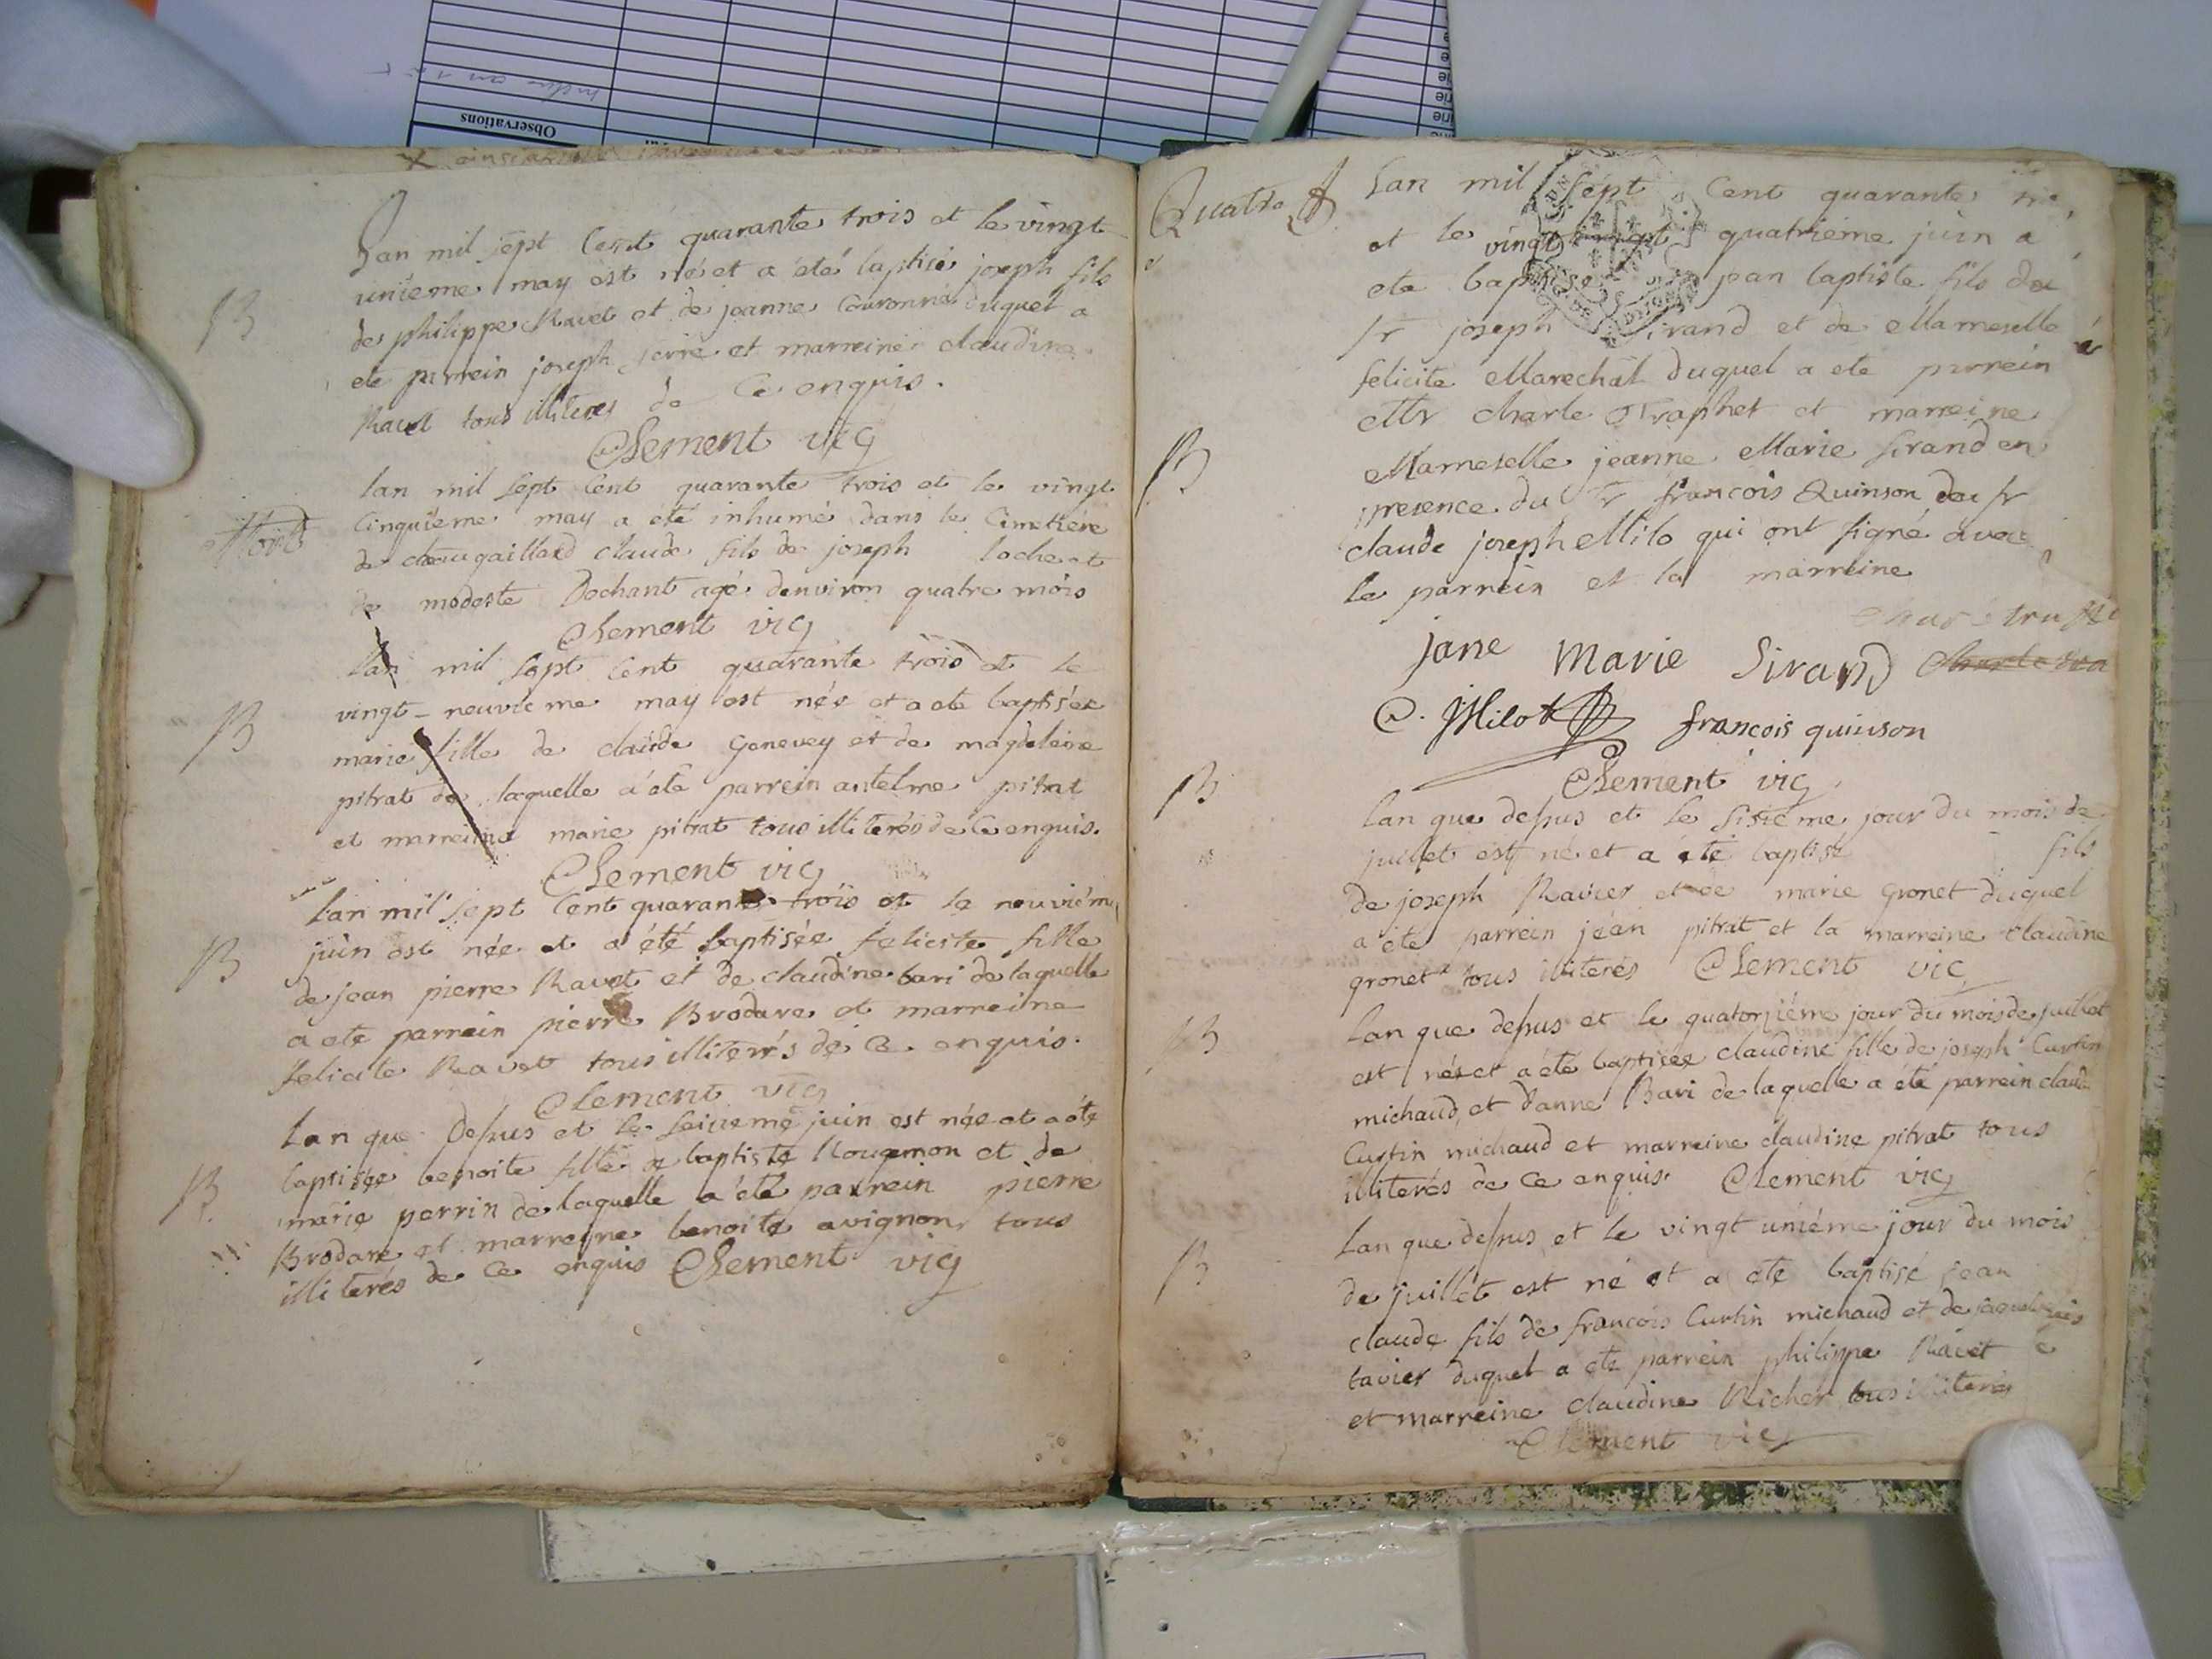 Observations
B
Lan mil sept Cent quarante trois et le vingt
unieme may est né et a été baptisé joseph fils
de philippe Ravet et de jeanne Couronne duquel a
ete parrein joseph et marreine claudine
Ravet tous illiteres de Ce enquis.
Clement vic
Mort
lan mil sept Cent quarante trois et le vingt
Cinquieme may a eté inhumé dans le Cimetiere
de claude fils de joseph loche et
de modeste Dechant agé denviron quatre mois
Clement vic
B
lan mil sept Cent quarante trois et le
vingt - neuvieme may est née et a ete baptisée
marie fille de claude Genevey et de magdeleine
pitrat de laquelle a été parrein antelme pitrat
et marreine marie pitrat tous illiterés de Ce enquis.
Clement vic
B
Lan mil sept Cent quarante trois et le neuviém
juin est née et a été baptisée felicite fille
de jean pierre Ravet et de claudine bari de laquelle
a ete parrein pierre Brodare et marreine
felicite Ravet tous illiterés de Ce enquis.
Clement vic
B
Lan que dessus et le seizieme juin est née et a éte
baptisée benoite fille de baptiste Nougemon et de
marie perrin de laquelle a été parrein pierre
Brodare et marreine benoite avignon tous
illiterés de Ce enquis Clement vic
Quatre
B
Lan mil sept Cent quarante
et le vingt quatriéme juin a
ete baptisé jean baptiste fils de
sr joseph Sirand et de Mameselle
felicite Marechal duquel a ete parrein
Mr charle Traphet et marreine
Mameselle jeanne Marie Sirand en
presence du sr francois Quinson du sr
claude joseph Milo qui ont signé avec
le parrein et la marreine
jane Marie Sirand
C. J Milot francois quinson
Clement vic
B
lan que dessus et le sisieme jour du mois de
juillet est né et a été baptisé fils
de joseph Ravier et de marie gronet duquel
a été parrein jean pitrat et la marreine claudine
gronet tous illiterés Clement vic
B
Lan que dessus et le quatorziéme jour du mois de juillet
est née et a été baptisée claudine fille de joseph Curtin
michaud et danne Bari de laquelle a été parrein claude
Curtin michaud et marreine claudine pitrat tous
illiterés de Ce enquis. Clement vic
B
Lan que dessus et le vingt uniéme jour du mois
de juillet est né et a ete baptisé jean
claude fils de francois Curtin michaud et de
tavier duquel a ete parrein philippe Ravet
et marreine claudine Richer tous illiterés
Clement vic